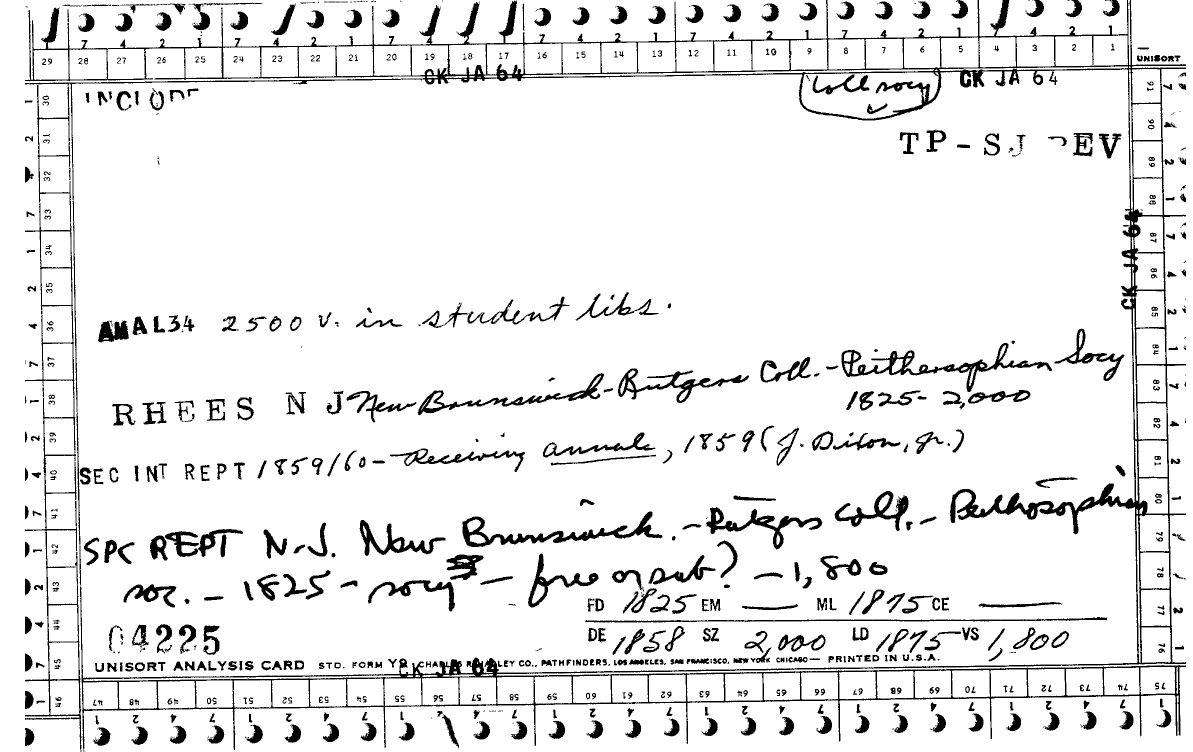 7 4 2 1 7 4 2 1 7 4 2 1 7 4 2 1 7 4 2 1 7 4 2 1 7 4 2 1
29 28 27 26 25 24 23 22 21 20 19 18 17 16 15 14 13 12 11 10 9 8 7 6 5 4 3 2 1
UNISORT
CK JA 64
Coll socy
CK JA 64
INCLODE
TP-SJ DEV
CK JA 64
AMAL34 2500 v. in student libs.
RHEES N J New Brunswick-Rutgers Coll.-Peithersophian Socy
1825- 2,000
SEC INT REPT 1859/60-Receiving annals, 1859 (J. Dixon, Jr.)
SPC REPT N.J. New Brunswick.-Rutgers Coll.-Peithosophian
soc. - 1825 - socy - free or sub? - 1,800
FD 1825 EM — ML 1875 CE —
04225
DE 1858 SZ 2,000 LD 1875 VS 1,800
UNISORT ANALYSIS CARD STD. FORM Y9 CHARLES R. HADLEY CO., PATHFINDERS, LOS ANGELES, SAN FRANCISCO, NEW YORK CHICAGO— PRINTED IN U.S.A.
CK JA 64
30 31 32 33 34 35 36 37 38 39 40 41 42 43 44 45 46
91 90 89 88 87 86 85 84 83 82 81 80 79 78 77 76 75
47 48 49 50 51 52 53 54 55 56 57 58 59 60 61 62 63 64 65 66 67 68 69 70 71 72 73 74 75